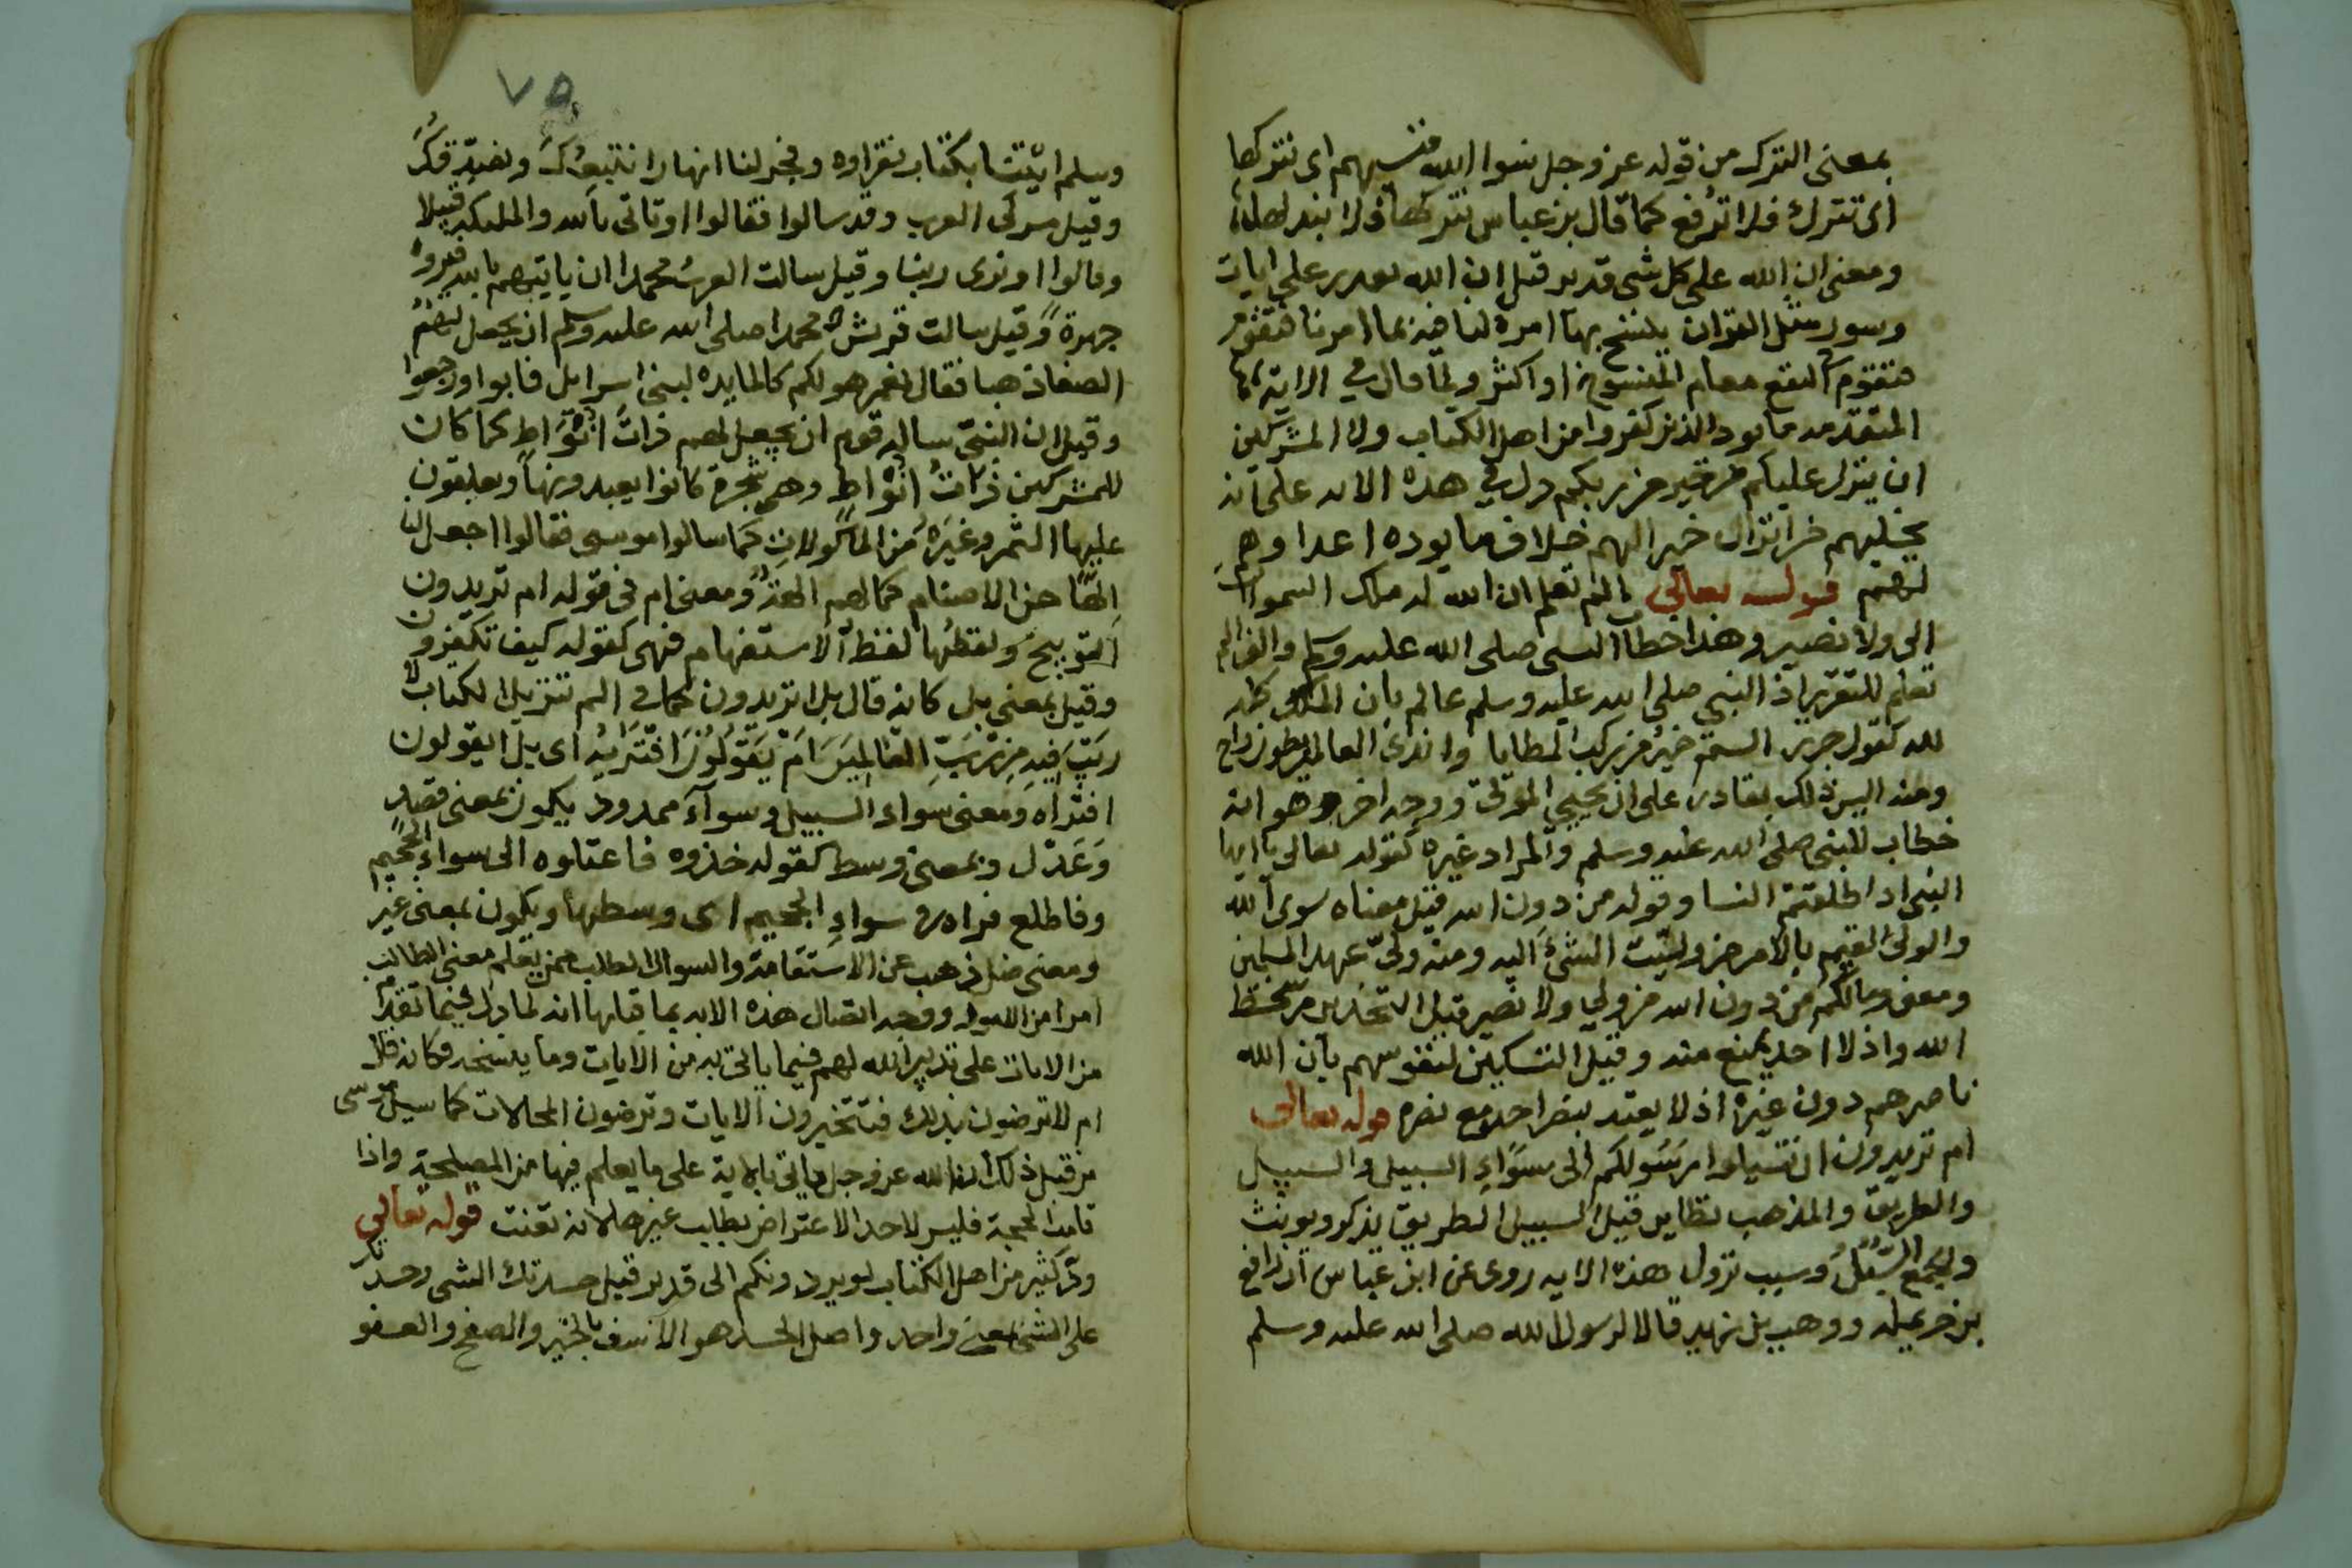 بمعنى الترك من قوله عز وجل نسوا الله فنسيهم اى نتركها
اى تترك فلا ترفع كما قال بن عباس نتركها فلا نبدلها
ومعنى ان الله على كل شى قدير قيل ان الله يقدر على ايات
وسور مثل القران ينسخ بها امره لنا فيه بما امرنا فتقوم
فتقوم فى النفع مقام المنسوخ او اكثر ولما قال فى الاية
المتقدمه ما يود الذين كفروا من اهل الكتاب ولا المشركين
ان ينزل عليكم من خير من ربكم دل فى هذه الايه على انه
يخليهم من انزال خير اليهم خلاف ما يوده اعداوهم
لهم قوله تعالى الم تعلم ان الله له ملك السموات
الى ولا نصير وهذا خطاب النبى صلى الله عليه وسلم والف الم
تعلم للتقرير اذ النبي صلى الله عليه وسلم عالم بان الملك كله
لله كقول جرير الستم خير من ركب المطايا واندى العالمين بطون راح
ومنه اليس ذلك بقادر على ان يحيي الموتى ووجه اخر وهو انه
خطاب للنبى صلى الله عليه وسلم والمراد غيره كقوله تعالى يا ايها
النبى اذا طلقتم النسا وقوله من دون الله قيل معناه سوى الله
والولى القيم بالامر من وليت الشئ اليه ومنه ولى عهد المسلمين
ومعنى ومالكم من دون الله من ولي ولا نصير قيل التحذير من سخط
الله واذ لا احد يمنع منه وقيل التسكين لنفوسهم بان الله
ناصرهم دون غيره اذ لا يعتد بنصر احد مع نصره قوله تعالى
ام تريدون ان تسيلوا رسولكم الى سواء السبيل والسبيل
والطريق والمذهب نظاير قيل السبيل الطريق يذكر ويونث
ويجمع السبل وسبب نزول هذه الايه روى عن ابن عباس ان رافع
بن خريمله ووهب بن زيد قالا لرسول الله صلى الله عليه وسلم
٧٥
وسلم ائتنا بكتاب نقراوه وفجر لنا انهارا نتبعك ونصدقك
وقيل مشركى العرب وقد سالوا فقالوا او تاتى بالله والمليكة قبيلا
وقالوا او نرى ربنا وقيل سالت العرب محمدا ان ياتيهم بالله فيروه
جهرة وقيل سالت قريش محمدا صلى الله عليه وسلم ان يجعل لهم
الصفا ذهبا فقال نعم هو لكم كالمايده لبنى اسرايل فابوا ورجعوا
وقيل ان النبى ساله قوم ان يجعل لهم ذات انواط كما كان
للمشركين ذات انواط وهى شجرة كانوا يعبدونها ويعلقون
عليها الثمر وغيره من الماكولات كما سالوا موسى فقالوا اجعل لنا
الها من الاصنام كما لهم الهة ومعنى ام فى قوله ام تريدون
التوبيخ ولفظها لفظ الاستفهام فهى كقوله كيف تكفرون
وقيل بمعنى بل كانه قال بل اتريدون كما فى الم تنزيل الكتاب لا
ريب فيه من رب العالمين ام يقولون افتريه اى بل ايقولون
افتراه ومعنى سواء السبيل وسوآء ممدود يكون بمعنى قصد
وعدل وبمعنى وسط كقوله خذوه فاعتلوه الى سواء الجحيم
وفاطلع فراه فى سواء الجحيم اى وسطها ويكون بمعنى غير
ومعنى ضل ذهب عن الاستقامة والسوال الطلب ممن يعلم معنى الطالب
امرا من الامور ووجه اتصال هذه الايه بما قبلها انه لما دل فيما تقدم
من الايات على تدبير الله لهم فيما ياتى به من الايات وما ينسخه فكانه قال
ام لا ترضون بذلك فتتخيرون الايات وترضون المحالات كما سيل موسى
من قبل ذلك ان الله عز وجل ياتى بالاية على ما يعلم فيها من المصلحة واذا
قامت الحجة فليس لاحد الاعتراض بطلب غيرها لانه تعنت قوله تعالى
ود كثير من اهل الكتاب لو يردونكم الى قدير قيل حسدتك الشى وحسدتك
على الشى بمعنى واحد واصل الحسد هو الاسف بالخير والصفح والعفو